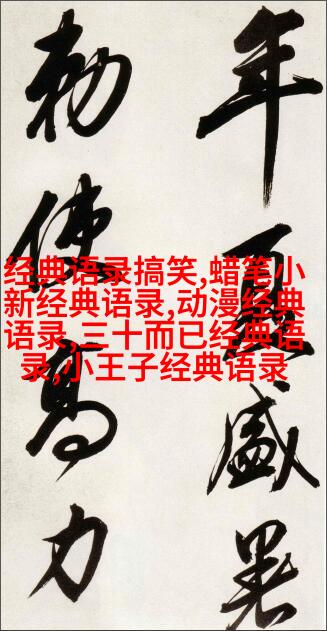 年夏盛暑
勅使高力
经典语录搞笑,蜡笔小
新经典语录,动漫经典
语录,三十而已经典语
录,小王子经典语录